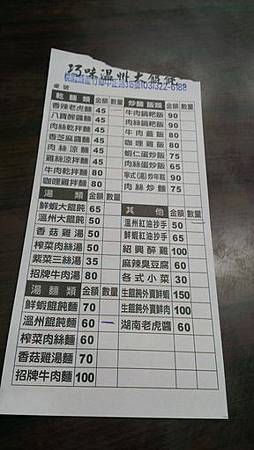 巧味溫州大餛飩
桌號
乾麵類 金額 數量
香辣老虎麵 45
八寶醡醬麵 45
肉絲乾拌麵 45
香芝麻醬麵 45
肉絲涼麵 45
雞絲涼拌麵 45
牛肉乾拌麵 80
咖哩雞拌麵 80
湯類 金額 數量
鮮蝦大餛飩 65
溫州大餛飩 50
香菇雞湯 50
榨菜肉絲湯 50
紫菜三絲湯 35
招牌牛肉湯 80
湯麵類 金額 數量
鮮蝦餛飩麵 70
溫州餛飩麵 60
榨菜肉絲麵 60
香菇雞湯麵 70
招牌牛肉麵 100
炒麵飯類 金額 數量
牛肉鍋粑飯 90
肉絲鍋粑飯 90
牛肉燴飯 90
咖哩雞飯 80
蝦仁蛋炒飯 75
肉絲蛋炒飯 65
月蝦炒飯 90
肉絲炒麵 75
其他 金額 數量
溫州紅油抄手 50
鮮蝦紅油抄手 65
紹興醉雞 100
麻辣臭豆腐 60
各式小菜 30
生餛飩外賣鮮蝦 150
生餛飩外賣鮮肉 100
湖南老虎醬 60